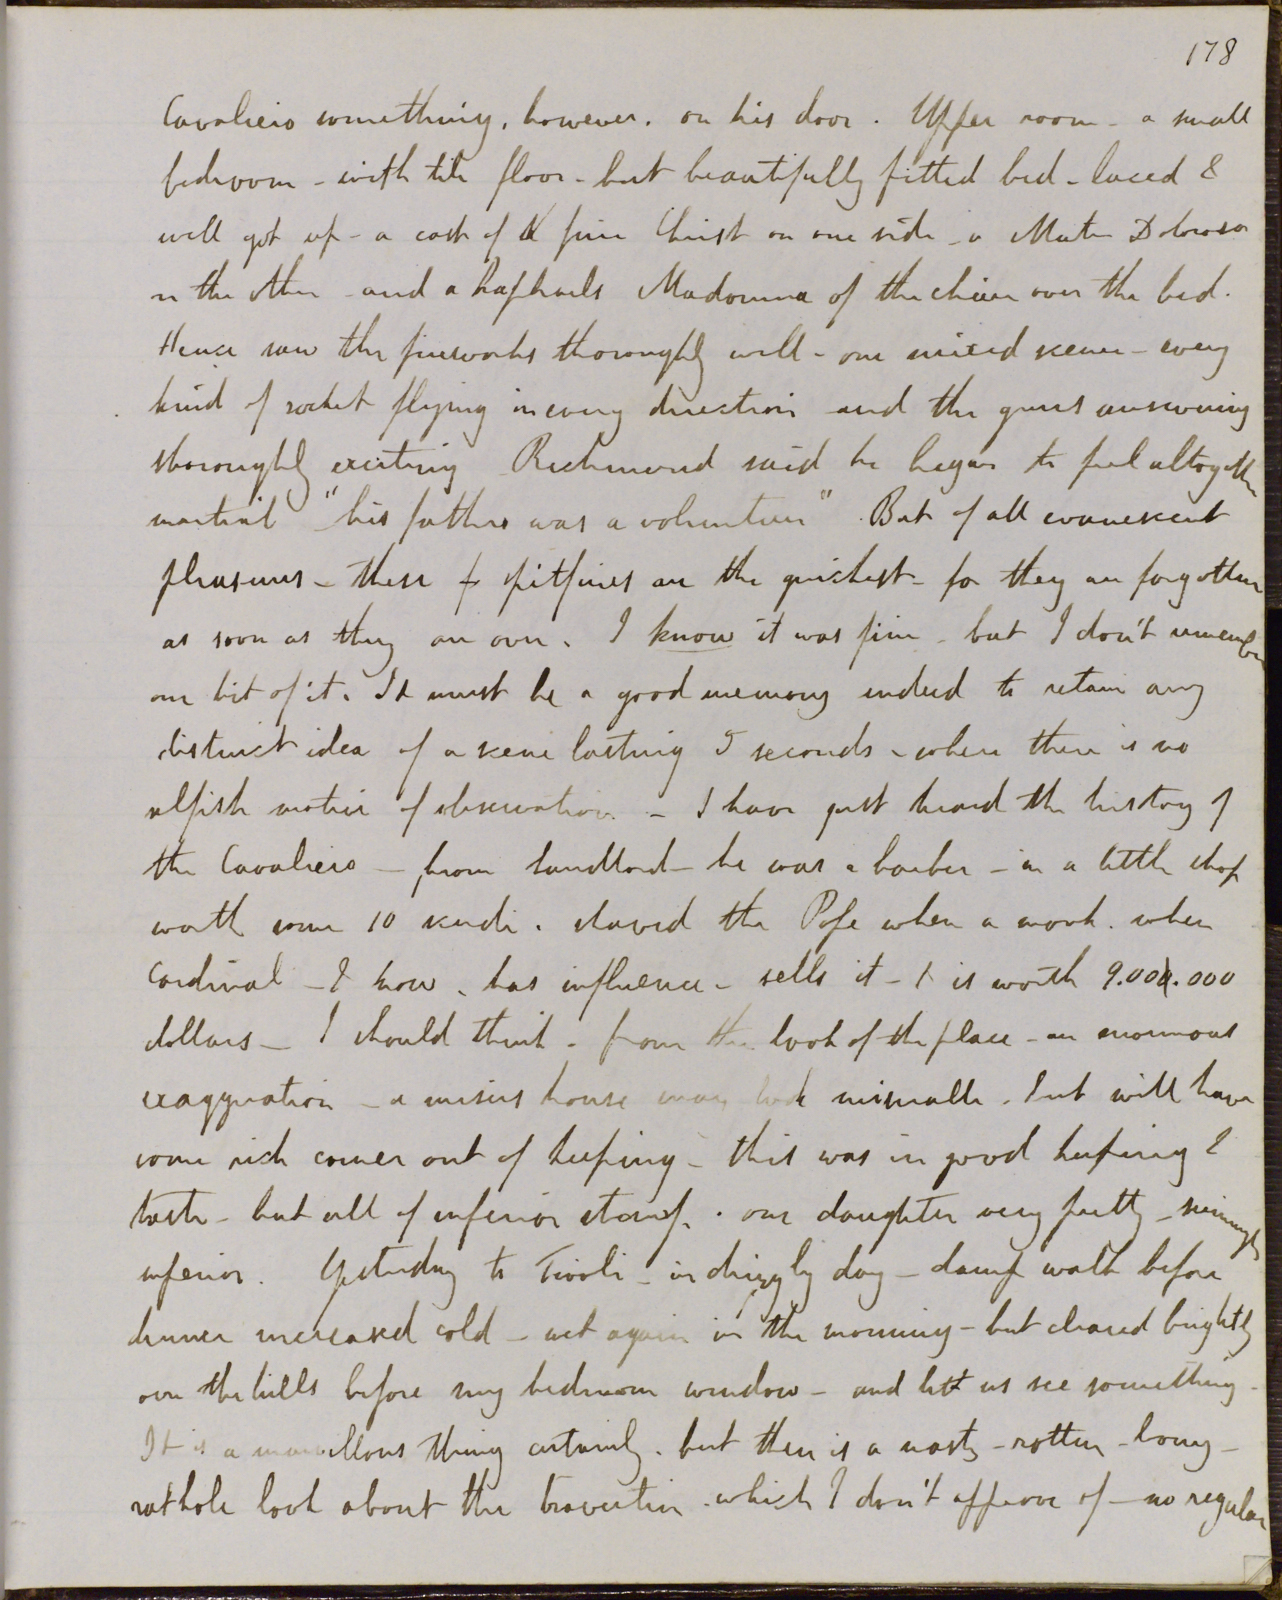 178
Cavaliero something, however. on his door. Upper room - a small
bedroom - with tile floor - but beautifully fitted bed - laced &
well got up - a cast of a fine Christ on one side - a Mater Dolorosa
on the other - and a Raphaels Madonna of the chair over the bed.
Hence saw the fireworks thoroughly well - one mixed scene - every
kind of rocket flying in every direction and the guns answering
thoroughly exciting Richmond said he began to feel altogether
martial "his father was a volunteer". But of all evanescent
pleasures - these spitfires are the quickest - for they are forgotten
as soon as they are over. I know it was fine - but I don't remember
one bit of it. It must be a good memory indeed to retain any
distinct idea of a scene lasting 5 seconds - where there is no
selfish motive of observation. - I have just heard the history of
the Cavaliero - from landlord - he was a barber - in a little shop
worth some 10 scudi. shaved the Pope when a monk. when
Cardinal - I know. has influence - sells it - & is worth 9.000.000
dollars - I should think - from the look of the place - an enormous
exaggeration - a misers house may look miserable. but will have
some rich corner out of keeping - this was in good keeping &
taste - but all of inferior stamp. one daughter very pretty - seemingly
inferior. Yesterday to Tivoli - in drizzly day - damp walk before
dinner increased cold - wet again in the morning - but cleared brightly
over the hills before my bedroom window - and let us see something -
It is a marvellous thing certainly. but there is a nasty - rotten - bony -
rathole look about the travertine which I don't approve of - no regular